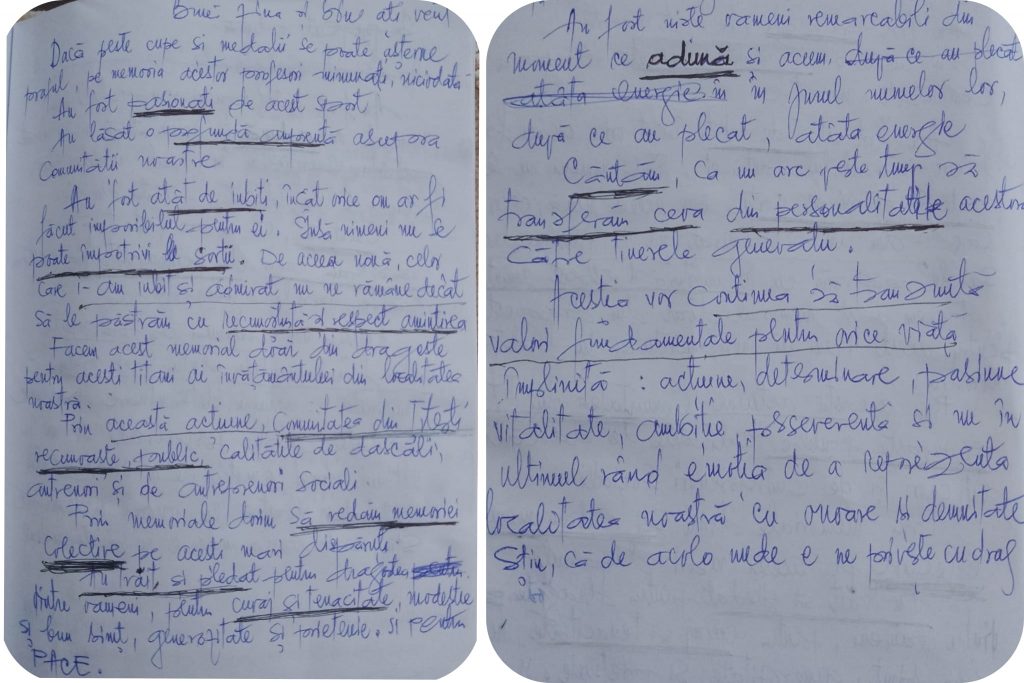 Bună ziua si bine ati venit
Dacă peste cupe si medalii se poate așterne
praful, pe memoria acestor profesori minunati, niciodată
Au fost pasionati de acest sport
Au lăsat o profundă amprentă asupra
Comunitătii noastre
Au fost atât de iubiti, încât orice om ar fi
făcut imposibilul pentru ei. Însă nimeni nu se
poate împotrivi sortii. De aceea nouă, celor
care i-am iubit si admirat nu ne rămâne decât
Să le păstrăm cu recunostintă si respect amintirea
Facem acest memorial doar din dragoste
pentru acesti titani ai învătământului din localitatea
noastră.
Prin această actiune, Comunitatea din
recunoaste, public, calitătile de dascăli,
antrenori și de antreprenori sociali
Prin memoriale dorim să redăm memoriei
Colective pe acesti mari dispăruti.
Au trăit si pledat pentru dragostea
dintre oameni, pentru curaj si tenacitate, modestie
și bun simt, generozitate și prietenie. si pentru
PACE.
Au fost niste oameni remarcabili din
moment ce adună si acum, după ce au plecat
atâta energie în în jurul numelor lor,
după ce au plecat, atâta energie
Căutăm, Ca un arc peste timp să
transferăm ceva din personalitatile acestora
către tinerele generatii.
Acestia vor Continua să transmită
valori fundamentale pentru orice viată
împlinită : actiune, determinare, pasiune
vitalitate, ambitie, perseverentă si nu în
ultimul rând emotia de a reprezenta
localitatea noastră cu onoare si demnitate
Știu, că de acolo unde e ne priveste cu drag